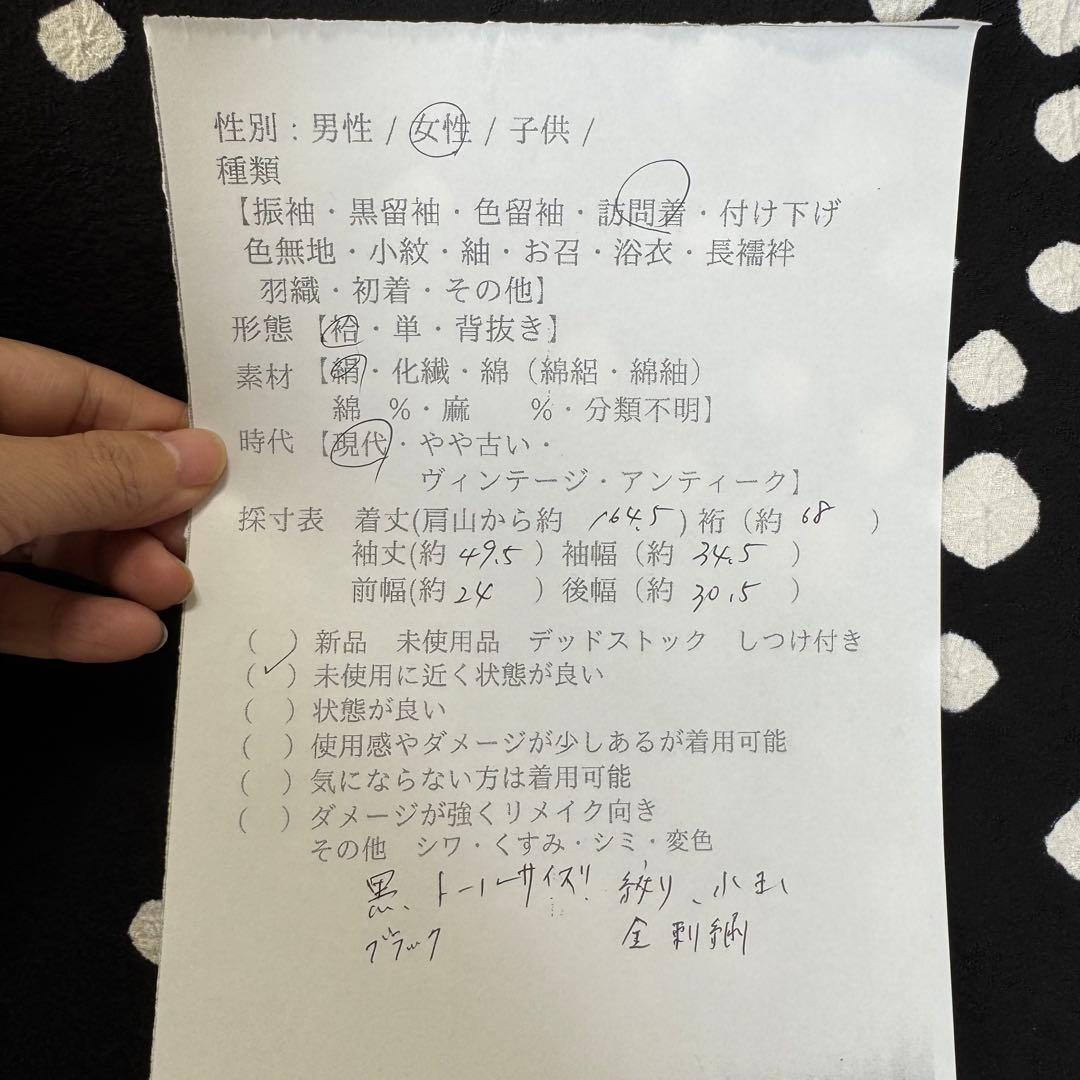 性別：男性 / 女性 / 子供 /
種類
【振袖・黒留袖・色留袖・訪問着・付け下げ
色無地・小紋・紬・お召・浴衣・長襦袢
羽織・初着・その他】
形態【袷・単・背抜き】
素材【絹・化繊・綿（綿絽・綿紬）
綿 %・麻 %・分類不明】
時代【現代・やや古い・
ヴィンテージ・アンティーク】
採寸表 着丈(肩山から約 164.5 ) 裄（約 68 ）
袖丈(約 49.5 ）袖幅（約 34.5 ）
前幅(約 24 ）後幅（約 30.5 ）
( ) 新品 未使用品 デッドストック しつけ付き
(✓) 未使用に近く状態が良い
( ) 状態が良い
( ) 使用感やダメージが少しあるが着用可能
( ) 気にならない方は着用可能
( ) ダメージが強くリメイク向き
その他 シワ・くすみ・シミ・変色
黒、トールサイズ! 絞り、水玉、
ブラック 金刺繍